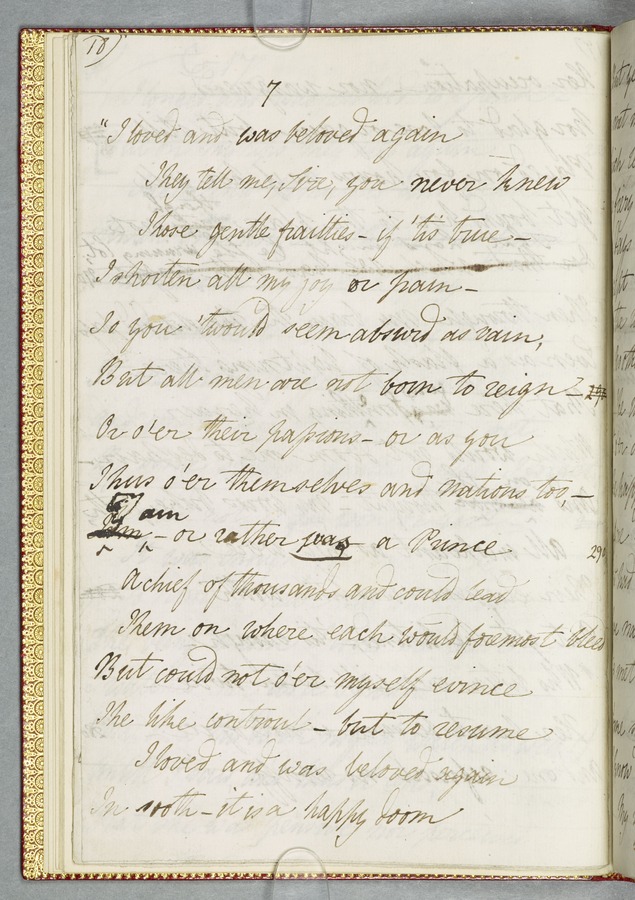 18)
7
"I loved and was beloved again
They tell me, Sire, you never knew
Those gentle frailties - if 'tis true -
I shorten all my joy or pain -
To you 'twould seem absurd as vain;
But all men are not born to reign -
Or o'er their passions - or as you
Thus o'er themselves and nations too, -
I am
- or rather was - a Prince 290
A chief of thousands and could lead
Them on where each would foremost bleed
But could not o'er myself evince
The like controul - but to resume
I loved and was beloved again
In sooth - it is a happy doom